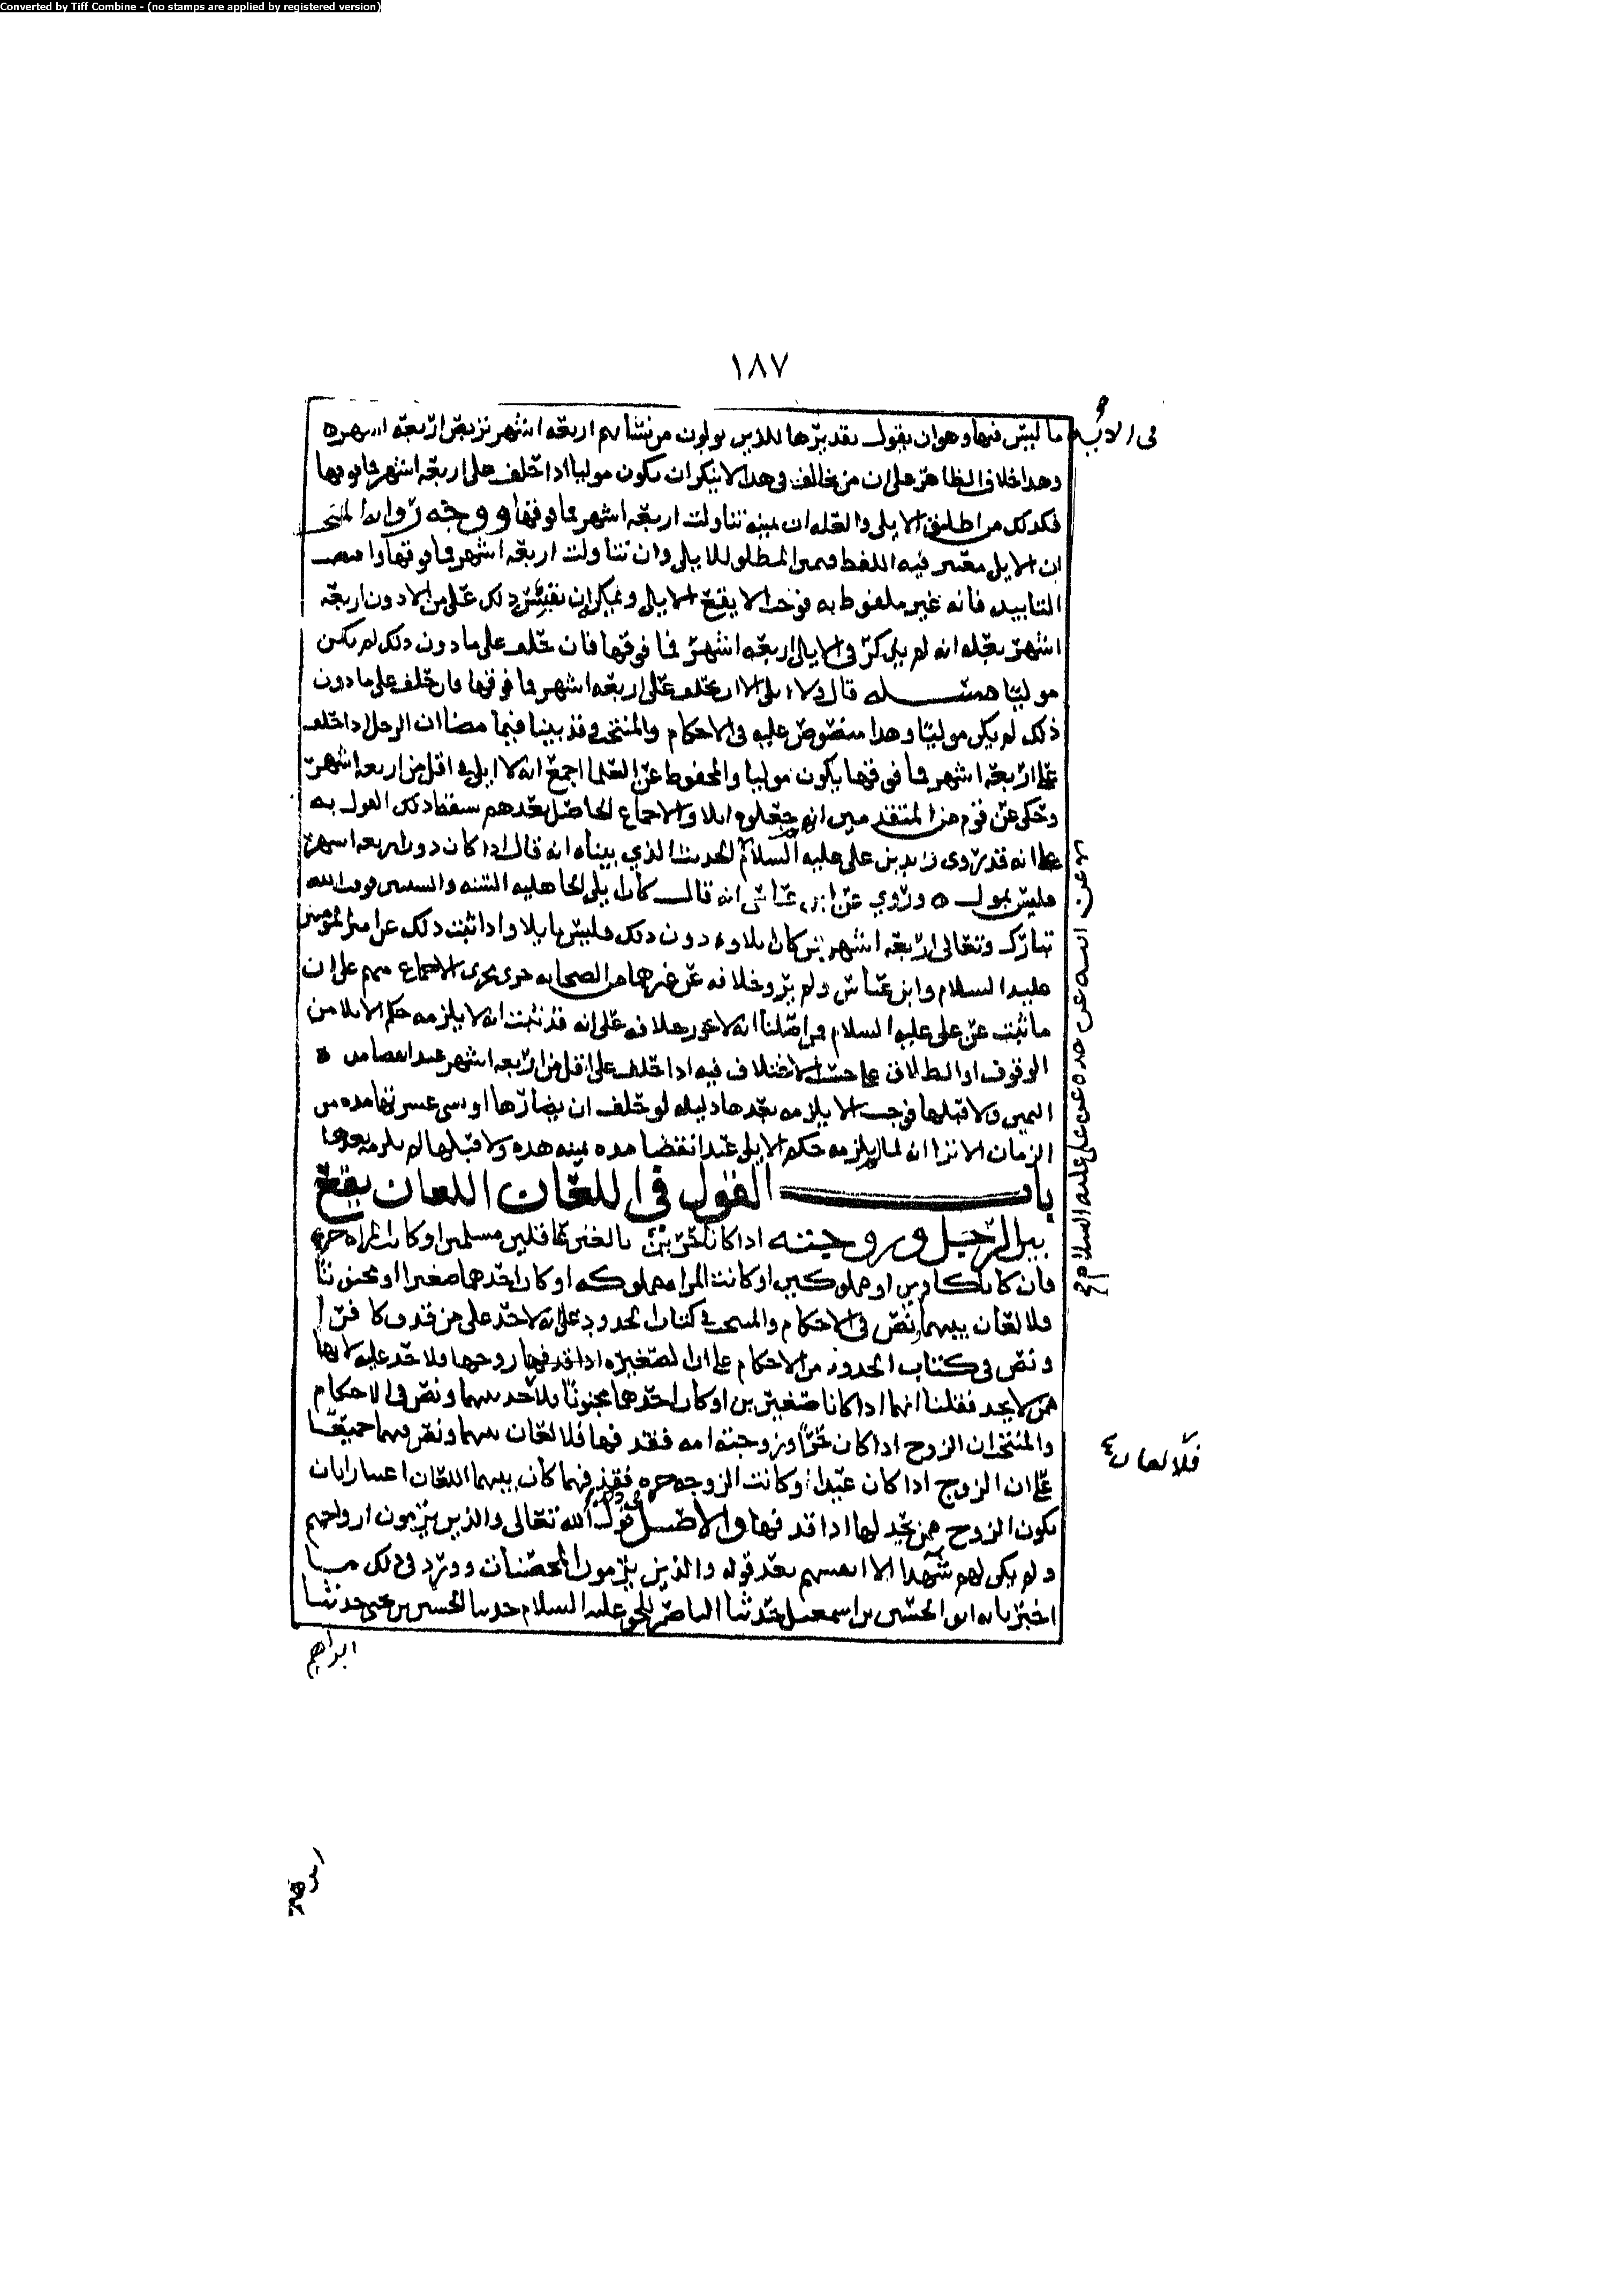 Converted by Tiff Combine - (no stamps are applied by registered version)
١٨٧
في الايه
ما ليس فيها وهو ان يقول تقديرها للذين يولون من نسائهم اربعة اشهر تربص اربعة اشهر
وهذا خلاف الظاهر على ان من يخالف في هذا لا ينكر ان يكون موليا اذا حلف على اربعة اشهر فما فوقها
فكذلك من اطلق الايلى والعله ان يمينه تناولت اربعة اشهر فما فوقها ووجه رواية المنتخب
ان الايلى معتبر فيه اللفظ المطلق للايلى وان تناولت اربعة اشهر فما فوقها
التابيد فانه غير ملفوظ به فوجب الا يقع الايلى ويمكن ان نقيس ذلك على من الا دون اربعة
اشهر بعله انه لم يذكر في الايلى اربعة اشهر فما فوقها فان حلف على ما دون ذلك لم يكن
موليا مسئله قال ولا ايلى الا ان يحلف على اربعة اشهر فما فوقها فان حلف على ما دون
ذلك لم يكن موليا وهذا منصوص عليه في الاحكام والمنتخب وقد بينا فيما مضا ان الرجل اذا حلف
على اربعة اشهر فما فوقها يكون موليا والمحفوظ عن العلما اجمع انه لا ايلى في اقل من اربعة اشهر
وحكي عن قوم من المتقدمين انهم جعلوه ايلا والاجماع الحاصل بعدهم سقط ذلك القول به
على انه قد روى زيد بن على عليه السلام الحديث الذي بيناه انه قال اذا كان دون اربعة اشهر
عن ابيه عن جده عن على عليه السلام صح
فليس بمول ه وروي عن ابن عباس انه قال كان ايلى الجاهليه السنه والسنتين فوقت الله
تبارك وتعالى اربعة اشهر فمن كان ايلاوه دون ذلك فليس بايلا واذا ثبت ذلك عن امير المؤمنين
عليه السلام وابن عباس ولم يرو خلافه عن غيرهما من الصحابه جرى مجرى الاجماع منهم على ان
ما ثبت عن على عليه السلام فمن اصلنا انه لا يجوز خلافه على انه قد ثبت انه لا يلزمه حكم الايلا من
الوقوف او الطلاق على حسب الاختلاف فيه اذا حلف على اقل من اربعة اشهر عند انقضا مده
اليمين ولا قبلها فوجب الا يلزمه بعدها دليله لو حلف ان يضارها او يسى عشرتها مده من
الزمان الا ترا انه لما لم يلزمه حكم الايلى عند انقضا مده يمينه هذه ولا قبلها لم يلزمه بعدها
باب القول في اللعان اللعان يقع
بين الرجل وزوجته اذا كانا حرين بالغين عاقلين مسلمين او كانت المراه حره
فان كانا كافرين او مملوكين او كانت المراه مملوكه او كان احدهما صغيرا او مجنونا
فلا لعان بينهما نص في الاحكام والمنتخب في كتاب الحدود على انه لا حد على من قذف كافرا
ونص في كتاب الحدود من الاحكام على ان الصغيره اذا قذفها زوجها فلا حد عليه لانها
ممن لا يحد فقلنا انهما اذا كانا صغيرين او كان احدهما مجنونا فلا حد بينهما ونص في الاحكام
والمنتخب ان الزوج اذا كان حرا وزوجته امه فقذفها فلا لعان بينهما ونص فيهما جميعا
فلا لعان
على ان الزوج اذا كان عبدا وكانت الزوجه حره فقذفها كان بينهما اللعان اعتبارا بان
يكون الزوج ممن يحد لها اذا قذفها والاصل في ذلك قول الله تعالى والذين يرمون ازواجهم
ولم يكن لهم شهدا الا انفسهم بعد قوله والذين يرمون المحصنات وورد في ذلك ما
اخبرنا به ابو الحسين بن اسمعيل حدثنا الناصر للحق عليه السلام حدثنا الحسن بن يحيى حدثنا
ابراهيم